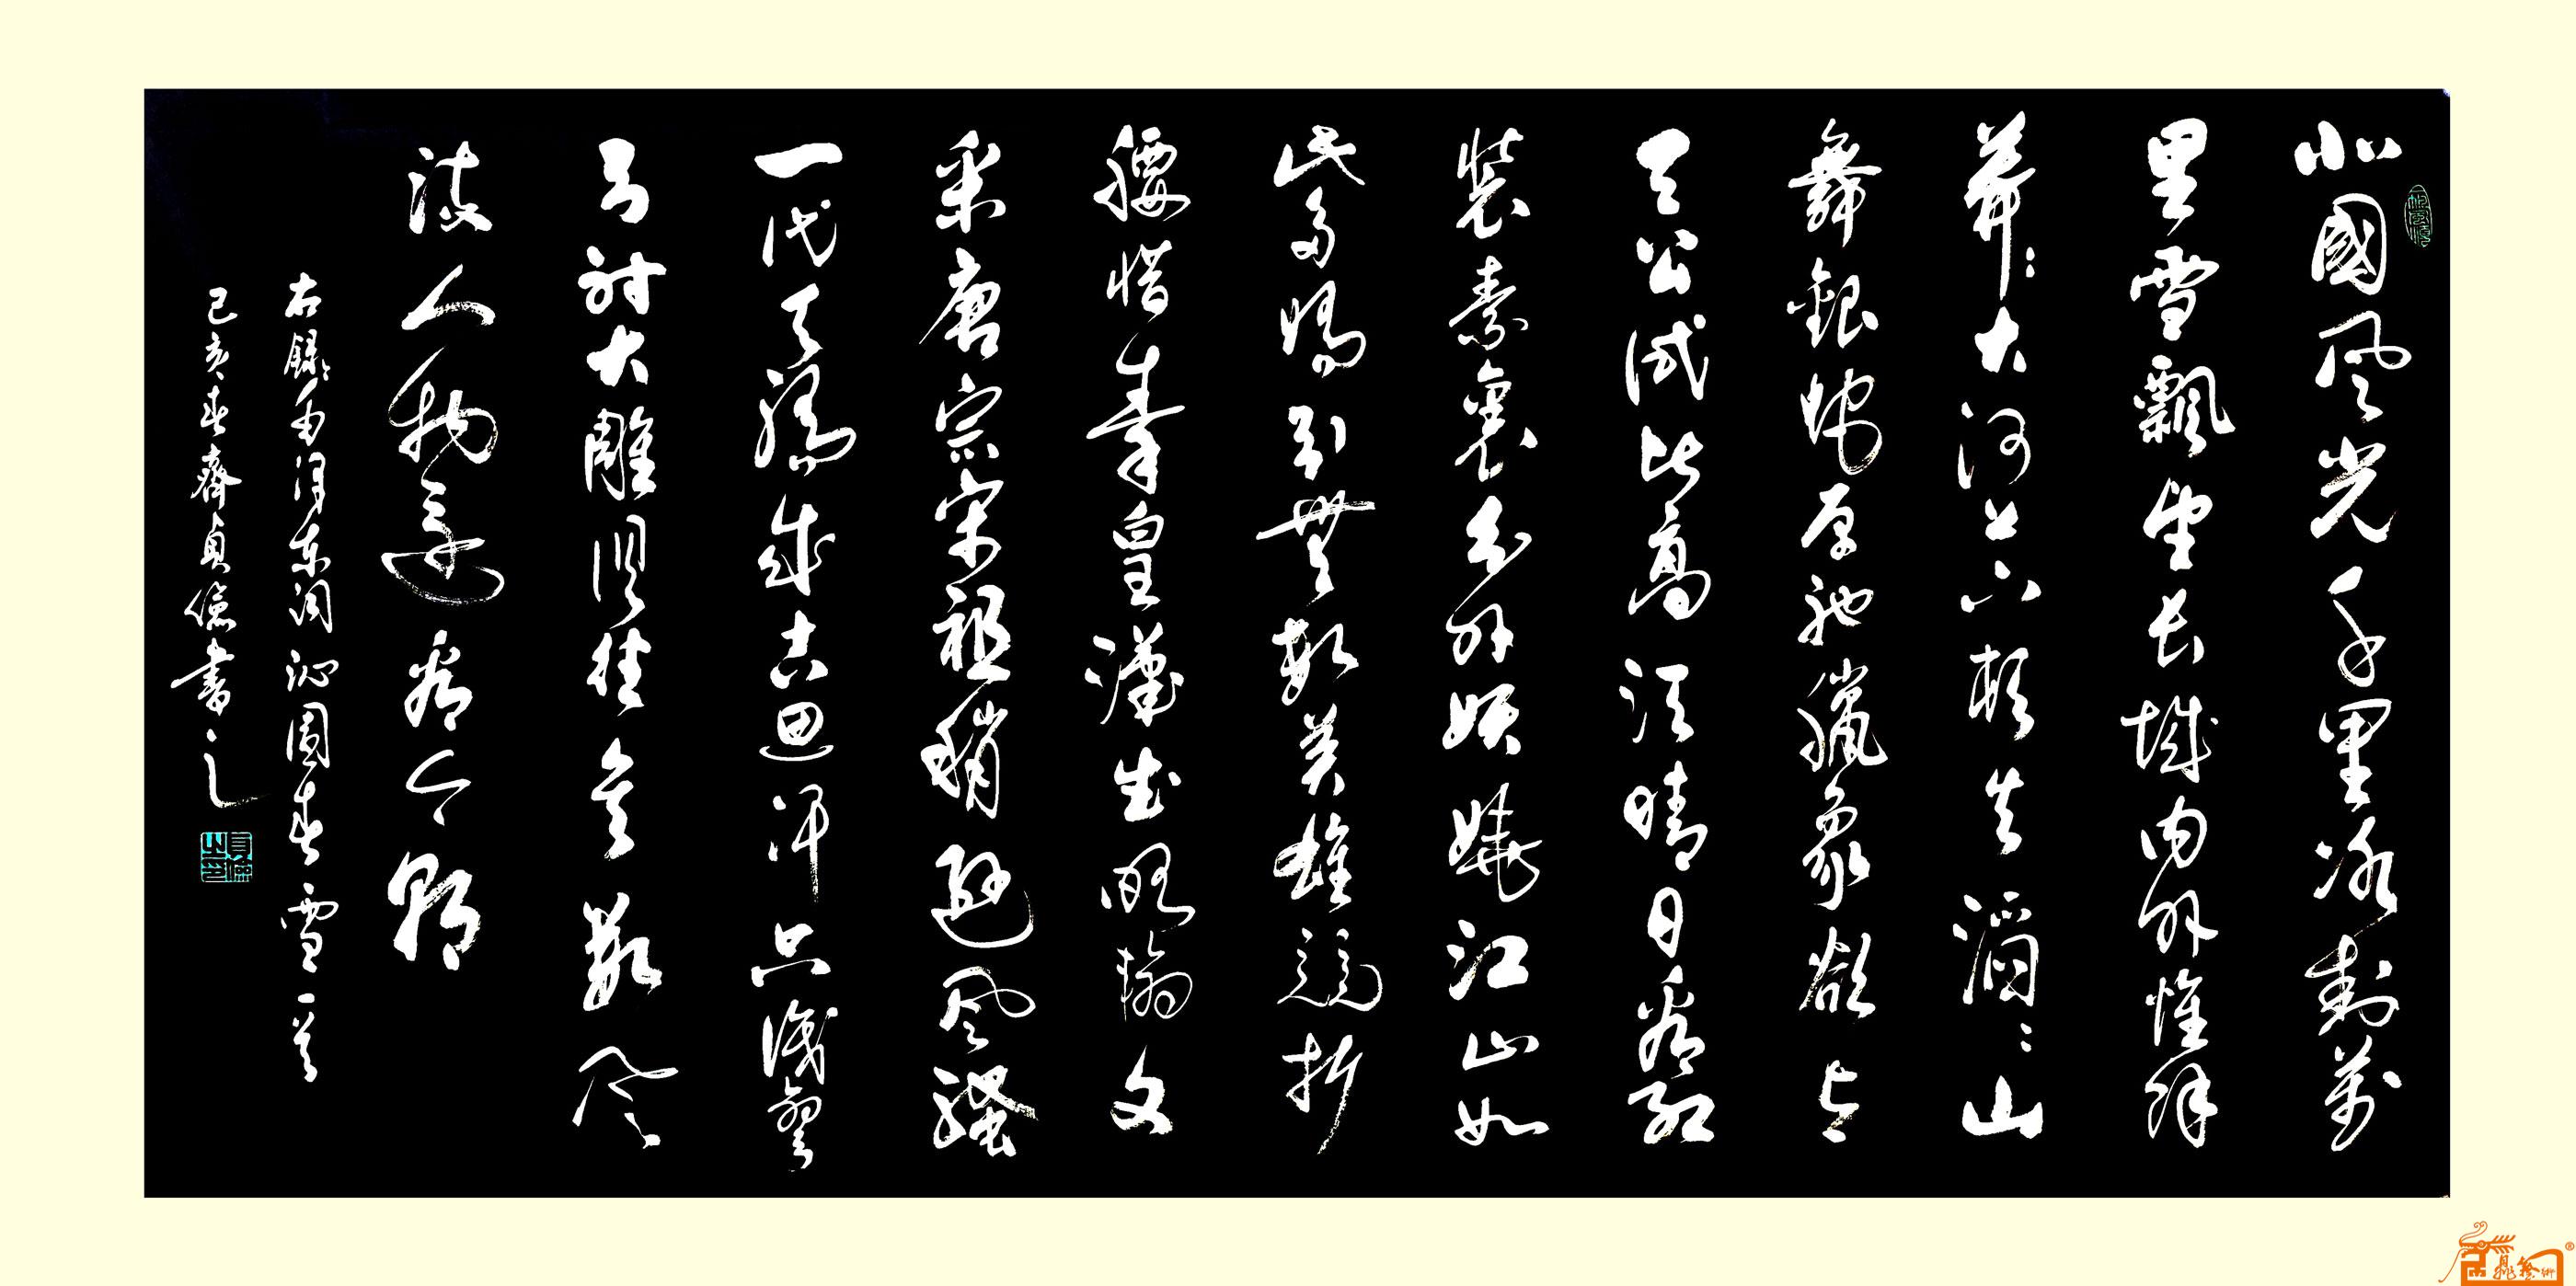 北國風光千里冰封萬
里雪飄望長城內外惟餘
莽莽大河上下頓失滔滔山
舞銀蛇原馳蠟象欲與
天公試比高須晴日看紅
裝素裹分外妖嬈江山如
此多嬌引無數英雄競折
腰惜秦皇漢武略輸文
采唐宗宋祖稍遜風騷
一代天驕成吉思汗只識彎
弓射大雕俱往矣數風
流人物還看今朝
右錄毛澤東詞沁園春雪一首
己亥春齊貞儉書之